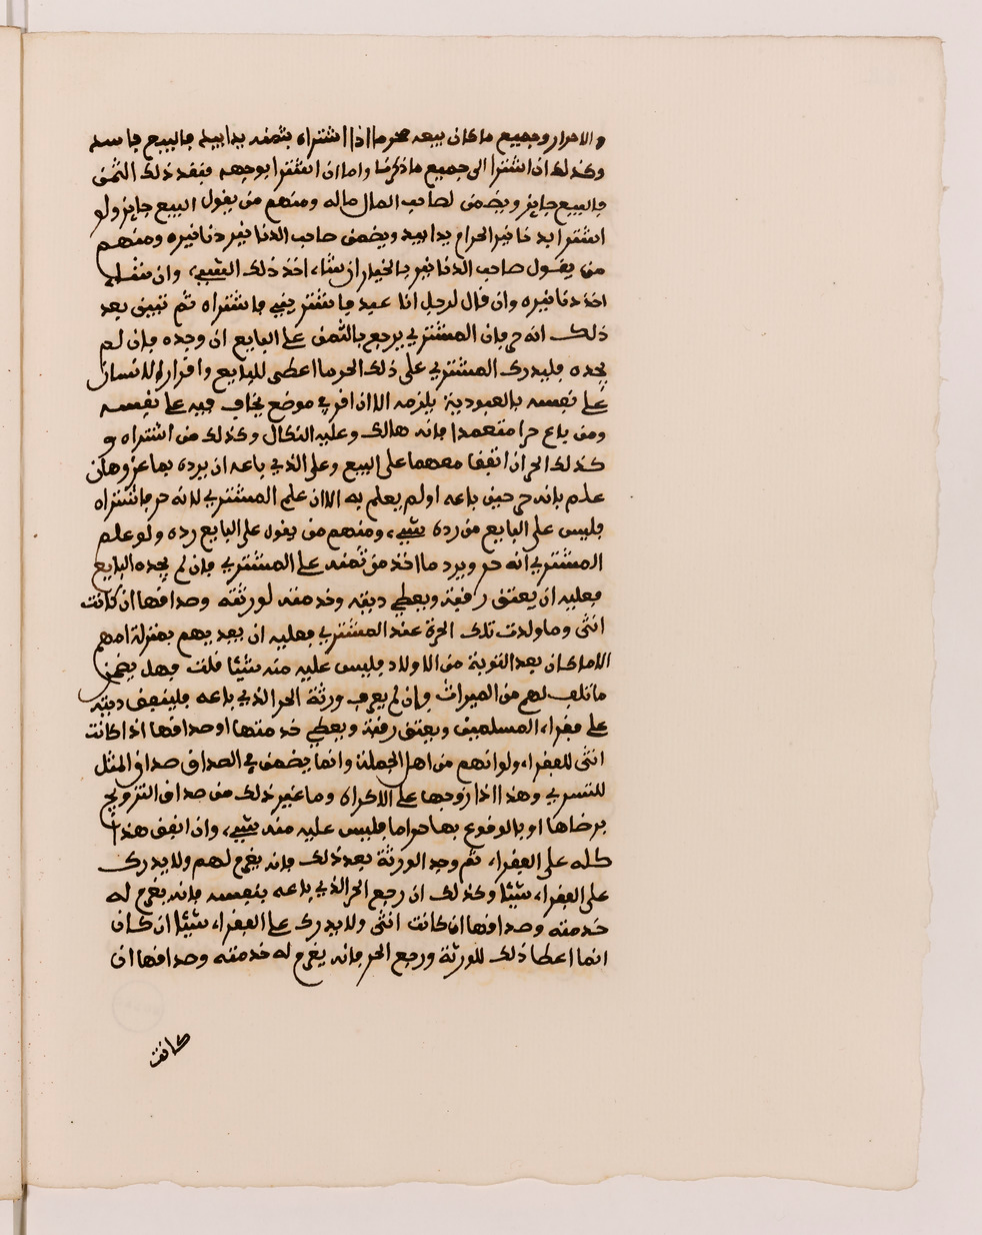 والاحرار وجميع ما كان بيعه محرما اذا اشتراه بثمنه يدا بيد فالبيع فاسد
وكذلك ان اشترا الى جميع ما ذكرنا واما ان اشترا بوجهه فنقد ذلك الثمن
فالبيع جايز ويضمن لصاحب المال ماله ومنهم من يقول البيع جايز ولو
اشترا بدنانير الحرام يدا بيد ويضمن صاحب الدنانير دنانيره ومنهم
من يقول صاحب الدنانير بالخيار ان شاء اخذ ذلك الشيء وان شاء
اخذ دنانيره وان قال لرجل انا عبد فاشتريني فاشتراه ثم تبين بعد
ذلك انه حر فان المشتري يرجع بالثمن على البايع ان وجده فان لم
يجده فليدرك المشتري على ذلك الحر ما اعطى للبايع واقرار الانسان
على نفسه بالعبودية يلزمه الا ان اقر في موضع يخاف فيه على نفسه
ومن باع حرا متعمدا فانه هالك وعليه النكال وكذلك من اشتراه و
كذلك الحر ان اتفقا معهما على البيع وعلى الذي باعه ان يرده بما عز وهان
علم بانه حر حين باعه او لم يعلم به الا ان علم المشتري لانه حر فاشتراه
فليس على البايع من رده شيء ومنهم من يقول على البايع رده ولو علم
المشتري انه حر ويرد ما اخذ من ثمنه على المشتري فان لم يجده البايع
فعليه ان يعتق رقبة ويعطي ديته وخدمته لورثته وصداقها ان كانت
انثى وما ولدت تلك الحرة عند المشتري فعليه ان يفديهم بمنزلة امهم
الا ما كان بعد التوبة من الاولاد فليس عليه منه شيئا قلت فهل يضمن
ما تلف لهم من الميراث وان لم يعرف ورثة الحر الذي باعه فلينفق ديته
على فقراء المسلمين ويعتق رقبة ويعطي خدمتها او صداقها اذا كانت
انثى للفقراء ولو انهم من اهل الجملة وانما يضمن في الصداق صداق المثل
للتسري وهذا اذا زوجها على الاكراه وما غير ذلك من صداق التزويج
برضاها او بالوقوع بها حراما فليس عليه منه شيء وان انفق هذا
كله على الفقراء ثم وجد الورثة بعد ذلك فانه يغرم لهم ولا يدرك
على الفقراء شيئا وكذلك ان رجع الحر الذي باعه بنفسه فانه يغرم له
خدمته وصداقها ان كانت انثى ولا يدرك على الفقراء شيئا ان كان
انما اعطا ذلك للورثة ورجع الحر فانه يغرم له خدمته وصداقها ان
كانت